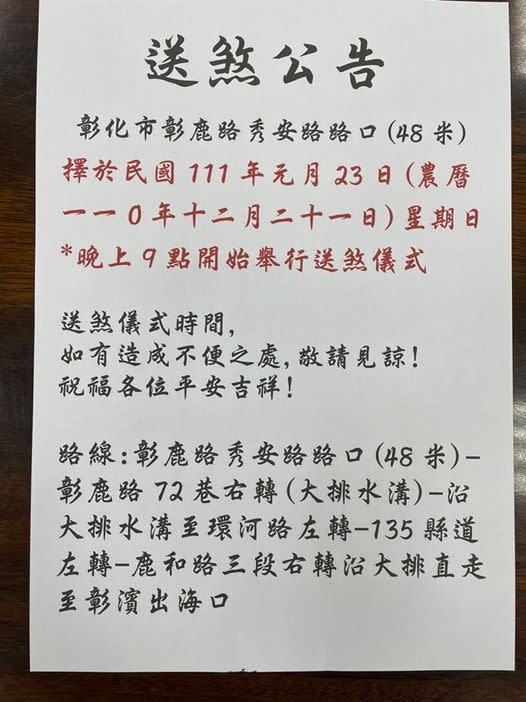 送煞公告
彰化市彰鹿路秀安路路口(48 米)
擇於民國 111 年元月 23 日(農曆
一一0 年十二月二十一日)星期日
*晚上 9 點開始舉行送煞儀式
送煞儀式時間,
如有造成不便之處,敬請見諒!
祝福各位平安吉祥!
路線:彰鹿路秀安路路口(48 米)-
彰鹿路 72 巷右轉(大排水溝)-沿
大排水溝至環河路左轉-135 縣道
左轉-鹿和路三段右轉沿大排直走
至彰濱出海口